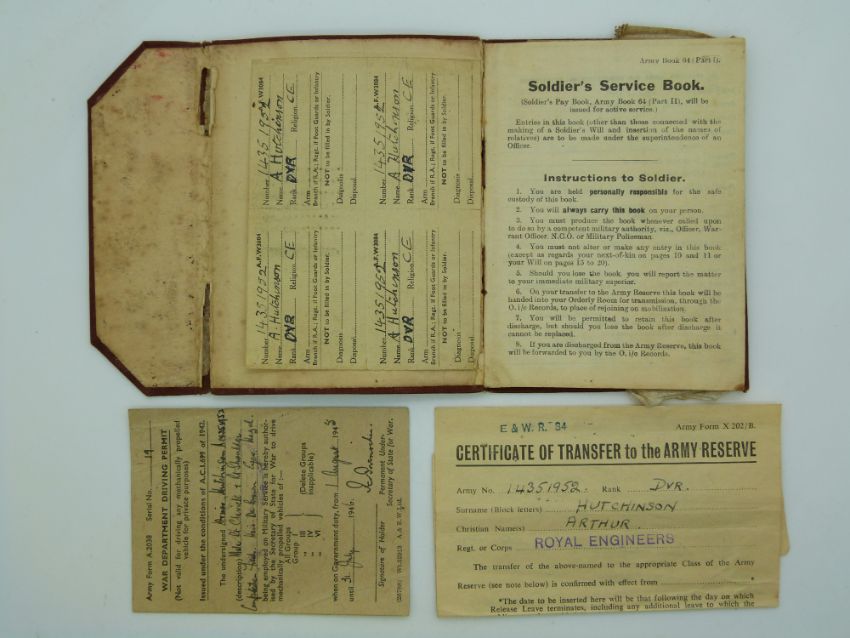 Army Book 64 (Part I).
Soldier's Service Book.
(Soldier's Pay Book, Army Book 64 (Part II), will be
issued for active service.)
Entries in this book (other than those connected with the
making of a Soldier's Will and insertion of the names of
relatives) are to be made under the superintendence of an
Officer.
Instructions to Soldier.
1. You are held personally responsible for the safe
custody of this book.
2. You will always carry this book on your person.
3. You must produce the book whenever called upon
to do so by a competent military authority, viz., Officer, War-
rant Officer, N.C.O. or Military Policeman.
4. You must not alter or make any entry in this book
(except as regards your next-of-kin on pages 10 and 11 or
your Will on pages 15 to 20).
5. Should you lose the book you will report the matter
to your immediate military superior.
6. On your transfer to the Army Reserve this book will be
handed into your Orderly Room for transmission, through the
O. i/c Records, to place of rejoining on mobilization.
7. You will be permitted to retain this book after
discharge, but should you lose the book after discharge it
cannot be replaced.
8. If you are discharged from the Army Reserve, this book
will be forwarded to you by the O. i/c Records.
A.F.W3084
Number 14351952
Name A Hutchinson
Rank DVR Religion CE
Arm
Branch if R.A.; Regt. if Foot Guards or Infantry
NOT to be filled in by Soldier.
Diagnosis
Disposal
A.F.W3084
Number 14351952
Name A Hutchinson
Rank DVR Religion CE
Arm
Branch if R.A.; Regt. if Foot Guards or Infantry
NOT to be filled in by Soldier.
Diagnosis
Disposal
A.F.W3084
Number 14351952
Name A. Hutchinson
Rank DVR Religion CE
Arm
Branch if R.A.; Regt. if Foot Guards or Infantry
NOT to be filled in by Soldier.
Diagnosis
Disposal
A.F.W3084
Number 14351952
Name A Hutchinson
Rank DVR Religion CE
Arm
Branch if R.A.; Regt. if Foot Guards or Infantry
NOT to be filled in by Soldier.
Diagnosis
Disposal
Army Form A.2038 Serial No. 19
WAR DEPARTMENT DRIVING PERMIT
(Not valid for driving any mechanically propelled
vehicle for private purposes)
Issued under the conditions of A.C.I.699 of 1942.
The undersigned Hutchinson A 14351952
(description)
being employed on Military Service is hereby author-
ised by the Secretary of State for War to drive
mechanically propelled vehicles of :—
All Groups
Group I
" III
" IV
" VI
(Delete Groups
inapplicable)
when on Government duty, from 1 August 1945
until 31 July 1946.
Signature of Holder
Permanent Under-
Secretary of State for War.
E & W. R. 84
Army Form X 202/B.
CERTIFICATE OF TRANSFER to the ARMY RESERVE
Army No. 14351952 Rank DVR.
Surname (Block letters) HUTCHINSON
Christian Name(s) ARTHUR.
Regt. or Corps ROYAL ENGINEERS
The transfer of the above-named to the appropriate Class of the Army
Reserve (see note below) is confirmed with effect from
*The date to be inserted here will be that following the day on which
Release Leave terminates, including any additional leave to which the